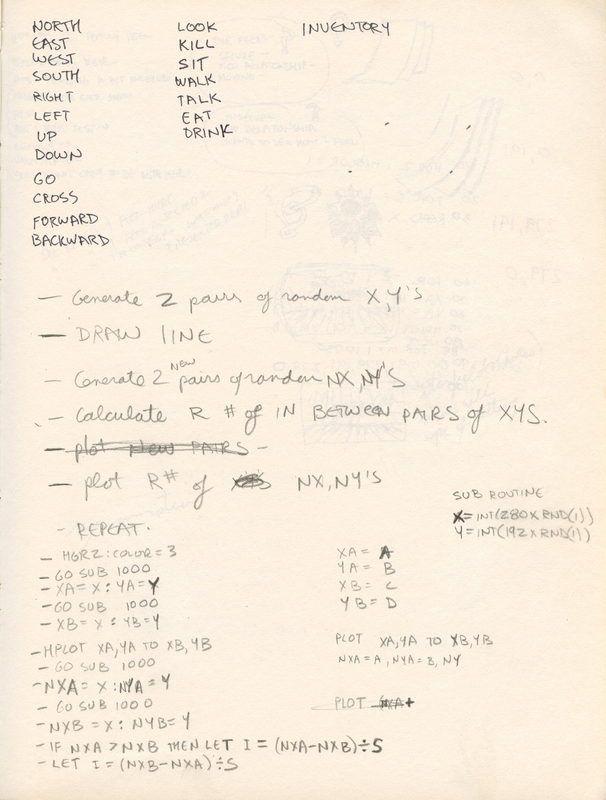 NORTH
EAST
WEST
SOUTH
RIGHT
LEFT
UP
DOWN
GO
CROSS
FORWARD
BACKWARD
LOOK
KILL
SIT
WALK
TALK
EAT
DRINK
INVENTORY
- Generate 2 pairs of random X,Y'S
- DRAW LINE
- Generate 2 NEW pairs of random NX,NY'S
- Calculate R # of IN BETWEEN PAIRS of XYS.
- plot New PAIRS -
- plot R# of NX,NY'S
- REPEAT.
SUB ROUTINE
X=INT(280XRND(1))
Y=INT(192XRND(1))
- HGR2:COLOR=3
- GO SUB 1000
- XA=X:YA=Y
- GO SUB 1000
- XB=X:YB=Y
- HPLOT XA,YA TO XB,YB
- GO SUB 1000
- NXA=X:NYA=Y
- GO SUB 1000
- NXB=X:NYB=Y
- IF NXA>NXB THEN LET I=(NXA-NXB)÷5
- LET I=(NXB-NXA)÷5
XA=A
YA=B
XB=C
YB=D
PLOT XA,YA TO XB,YB
NXA=A,NYA=B,NY
PLOT